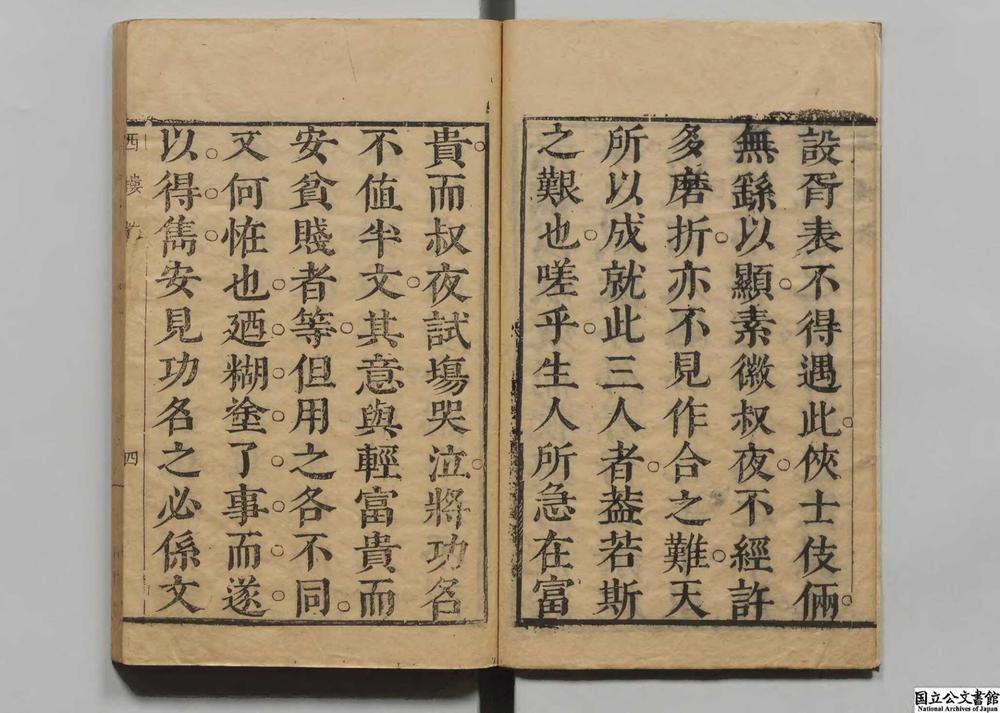 設胥表不得遇此俠士伎倆
無繇以顯素徽叔夜不經許
多磨折亦不見作合之難天
所以成就此三人者葢若斯
之艱也嗟乎生人所急在富
貴而叔夜試塲哭泣將功名
不值半文其意與輕富貴而
安貧賤者等但用之各不同
又何恠也廼糊塗了事而遂
以得雋安見功名之必係文
西樓
四
国立公文書館
National Archives of Japan